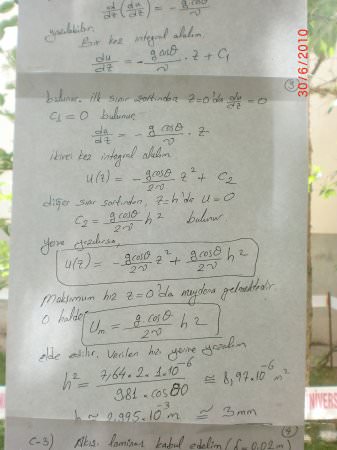 d/dz (du/dz) = - gcosθ/ν
yazılabilir.
Bir kez integral alalım
du/dz = - gcosθ/ν · z + C₁
(3)
bulunur. ilk sınır şartından z=0'da du/dz = 0
C₁ = 0 bulunur
du/dz = - gcosθ/ν · z
ikinci kez integral alalım
u(z) = - gcosθ/2ν z² + C₂
diğer sınır şartından, z=h'de u = 0
C₂ = gcosθ/2ν h² bulunur.
yerine yazılırsa,
u(z) = - gcosθ/2ν z² + gcosθ/2ν h²
Maksimum hız z=0'da meydana gelmektedir.
O halde Um = g cosθ/2ν h²
elde edilir. Verilen hızı yerine yazalım
h² = 7,64·2·1·10⁻⁶/981·cos80 ≅ 8,97·10⁻⁶ m²
h ≅ 2,995·10⁻³ m ≅ 3 mm
(4)
C-3) Akış laminer kabul edelim (L=0.02m)
30/6/2010
NİVERS